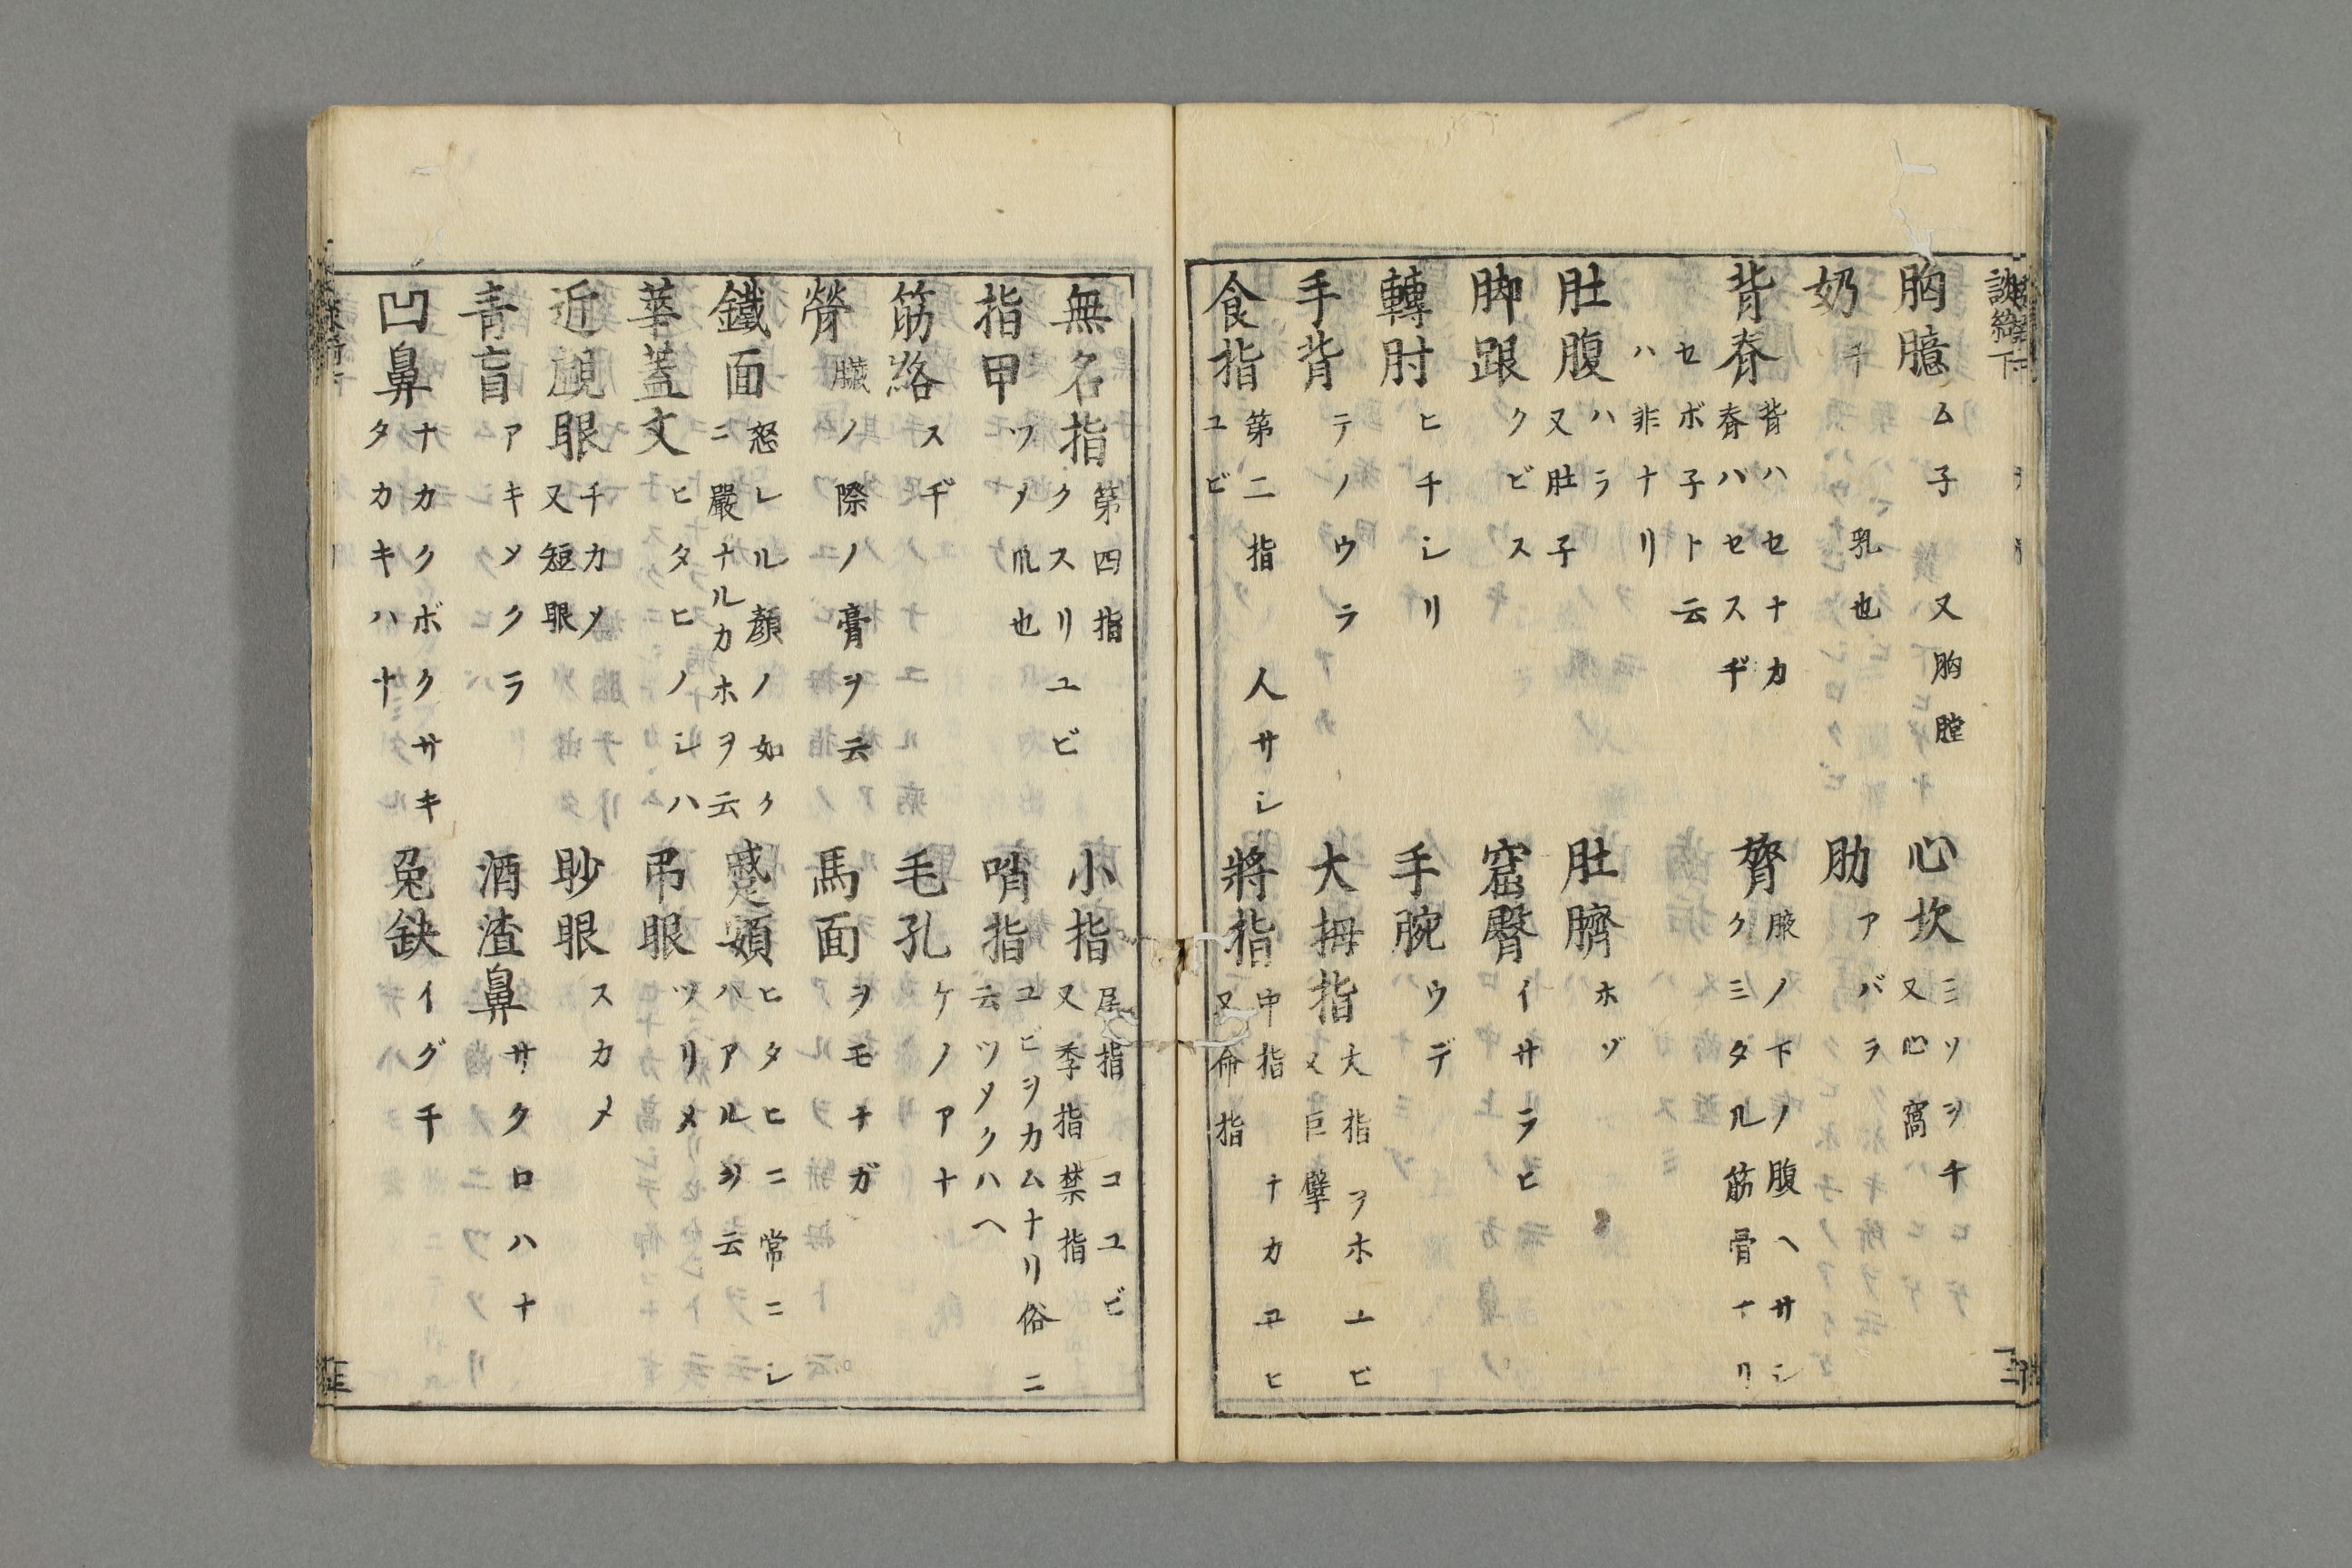 胸臆 ム子 又胸膛
心坎 ミソヲチ 又心窩
奶 チ 乳也
肋 アバラ
背脊 背ハセナカ 脊バセスヂ
セボ子ト云
ハ非ナリ
膂 腋ノ下ノ腹ヘサシ クミタル筋骨ナリ
肚腹 ハラ 又肚子
肚臍 ホゾ
脚跟 クビス
窟臀 イサラヒ
轉肘 ヒチシリ
手腕 ウデ
手背 テノウラ
大拇指 大指 ヲホユビ 又巨擘
食指 第二指 人サシユビ
將指 中指 ナカユヒ 又命指
無名指 第四指 クスリユビ
小指 尾指 コユビ 又季指禁指
指甲 ツメ 爪也
哨指 ユビヲカムナリ俗ニ云ツメクハヘ
筋絡 スヂ
毛孔 ケノアナ
膋 臓ノ際ノ膏ヲ云
馬面 ヲモナガ
鐵面 怒レル顔ノ如ク ニ嚴ナルカホヲ云
蹙頞 ヒタヒニ常ニシハアルヲ云
華蓋文 ヒタヒノシハ
吊眼 ツリメ
近覷眼 チカメ 又短眼
眇眼 スカメ
青盲 アキメクラ
酒渣鼻 サクロハナ
凹鼻 ナカクボクサキタカキハナ
兎缺 イグチ